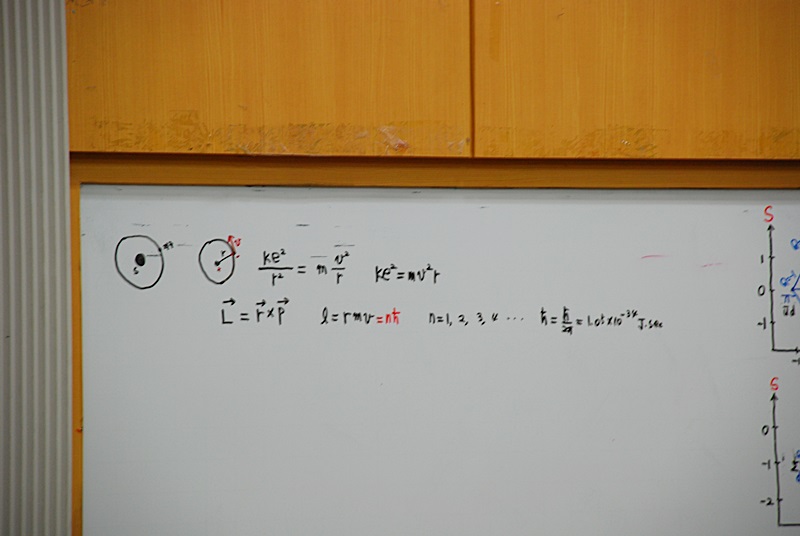 ke²/r² = m v²/r   ke² = mv²r
L⃗ = r⃗ × p⃗   l = rmv = nħ   n = 1, 2, 3, 4 ⋯   ħ = h/2π = 1.05 × 10⁻³⁴ J·sec
S
1
0
-1
S
0
-1
-2